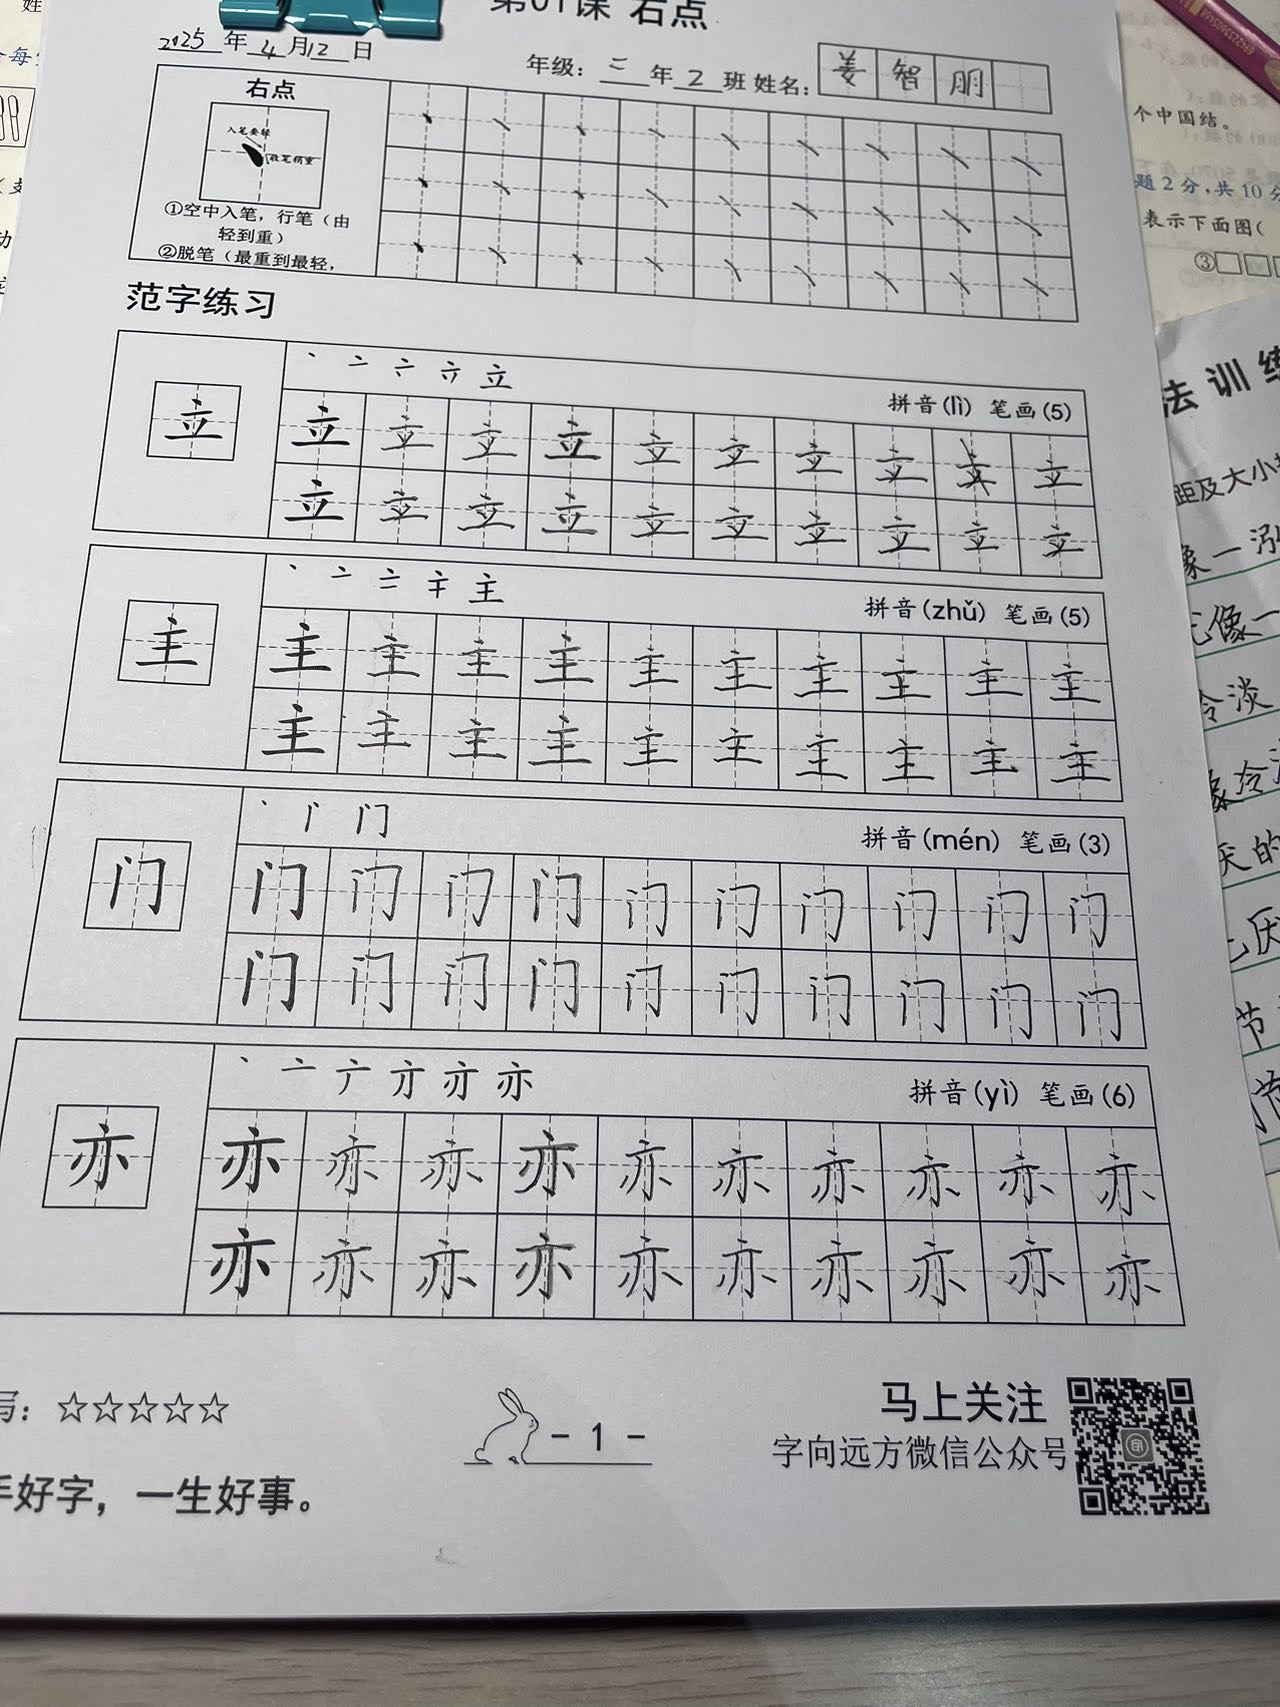 第01课 右点
2025年4月12日
年级：二年2班 姓名：姜智朋
右点
入笔要轻
收笔稍重
①空中入笔，行笔（由
轻到重）
②脱笔（最重到最轻，
范字练习
立
拼音(lì) 笔画(5)
立 立 立 立 立 立 立 立 立 立
立 立 立 立 立 立 立 立 立 立
主
拼音(zhǔ) 笔画(5)
主 主 主 主 主 主 主 主 主 主
主 主 主 主 主 主 主 主 主 主
门
拼音(mén) 笔画(3)
门 门 门 门 门 门 门 门 门 门
门 门 门 门 门 门 门 门 门 门
亦
拼音(yì) 笔画(6)
亦 亦 亦 亦 亦 亦 亦 亦 亦 亦
亦 亦 亦 亦 亦 亦 亦 亦 亦 亦
局：☆☆☆☆☆
- 1 -
马上关注
字向远方微信公众号
手好字，一生好事。
个中国结。
题2分，共10分
表示下面图(
③□□
法训练
距及大小
像一泓
光像一
冷淡
像冷
厌的
厌
节